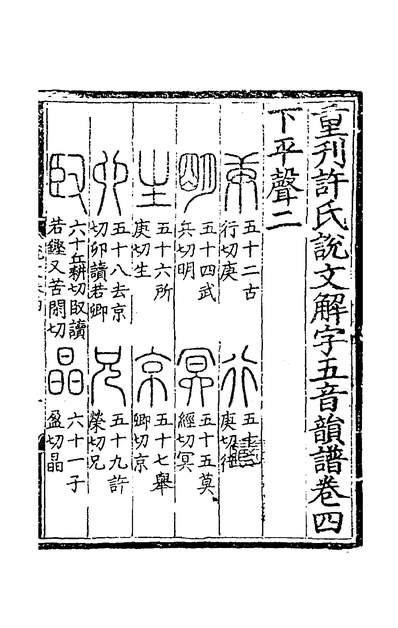 重刊許氏說文解字五音韻譜卷四
下平聲二
庚
五十二古
行切庚
行
五十
庚切行
朙
五十四武
兵切明
冥
五十五莫
經切冥
生
五十六所
庚切生
京
五十七舉
卿切京
卯
五十八去京
切卯讀若卿
兄
五十九許
榮切兄
臤
六十丘耕切臤讀
若鏗又苦閑切
晶
六十一子
盈切晶